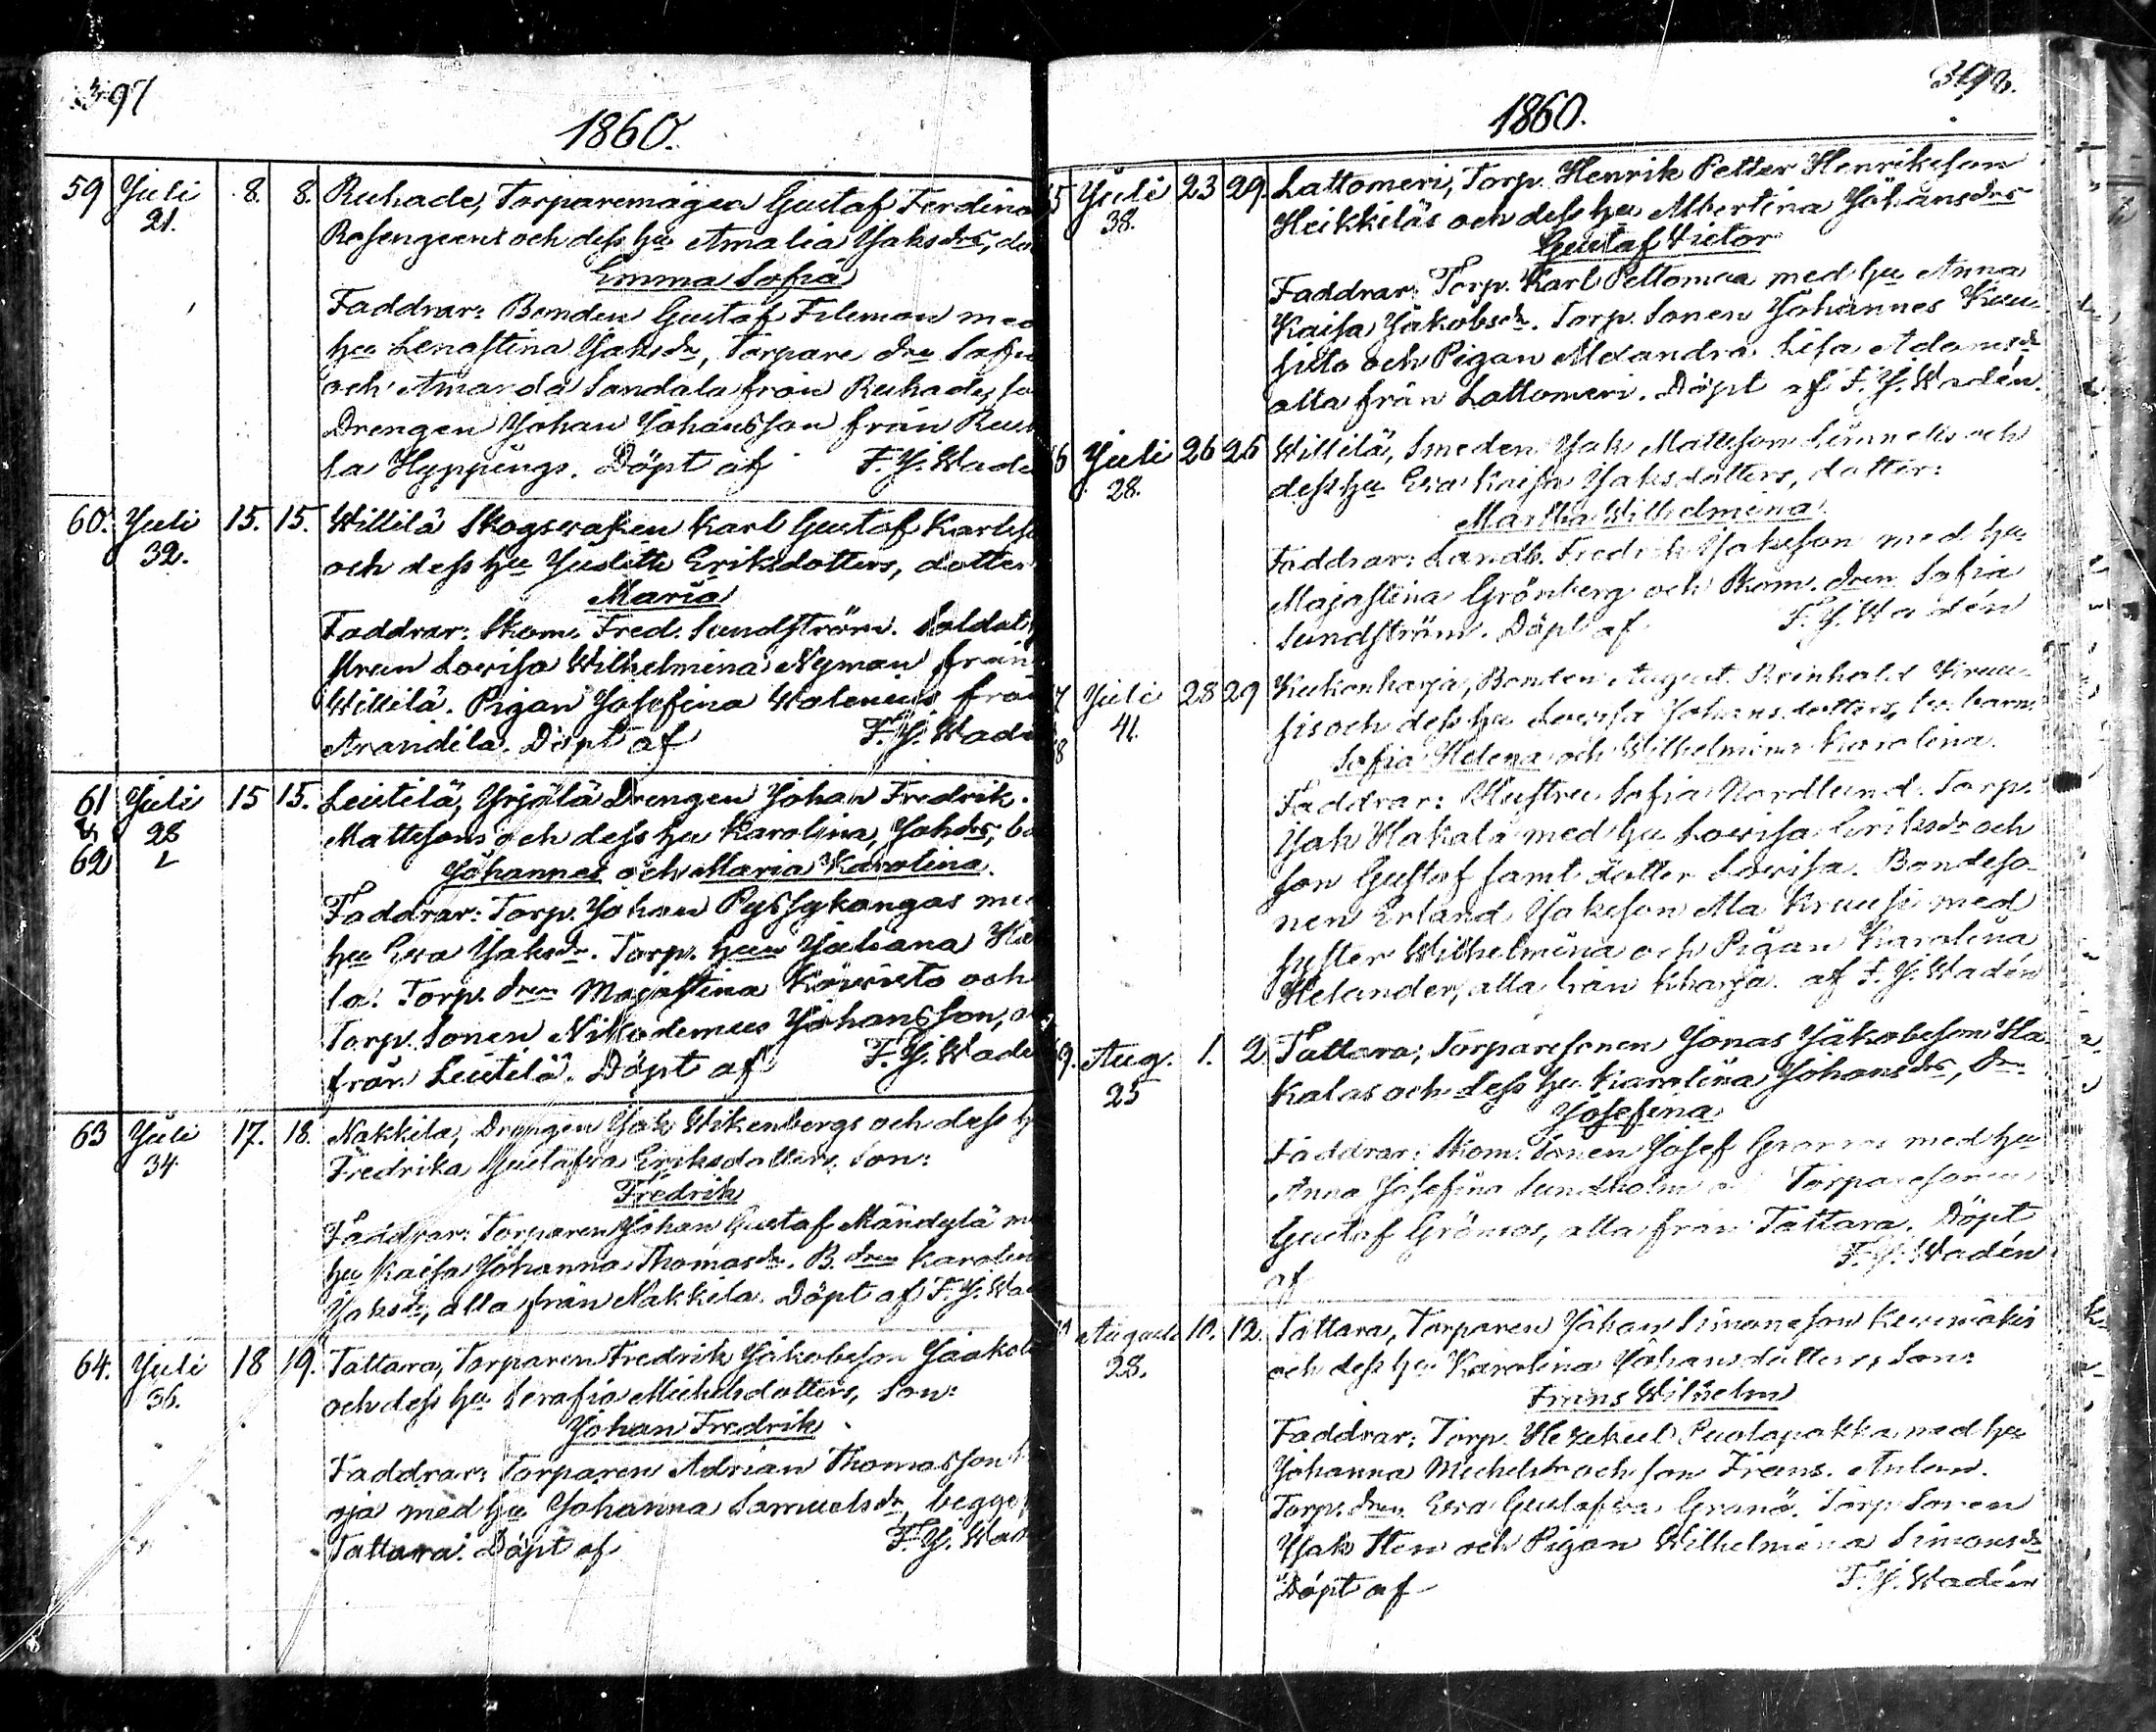 397
1860.
59 Juli 8. 8. Ruhade, Torparemågen Gustaf Ferdina
21. Rosengrens och dess hu Amalia Jaksdrs, do
Emma Sofia
Faddrar: Bonden Gustaf Fileman med
hu Lenastina Jaksdr, Torpare drn Sofia
och Amanda Sandala från Ruhade, sa
Drengen Johan Johansson från
la Hyppings. Döpt af F. J. Wadé
60. Juli 15. 15. Willilä Skogsvakten Karl Gustaf Karlss
32. och dess hu Juditte Eriksdotters, dotter
Maria
Faddrar: Skom. Fred. Sundström. Soldat
strun Lovisa Wilhelmina Nyman från
Willilä. Pigan Josefina Walenius från
Arandila. Döpt af F. J. Wadé
61 Juli 15 15. Leistilä, Yrjälä Drengen Johan Fredrik
& 28 Mattssons och dess hu Karolina, Johdrs, ba
62 Johannes och Maria Karolina.
Faddrar: Torp. Johan Pyssykangas med
hu Eva Jaksdr. Torp. hun Juliana
la. Torp. drn Majastina Koivisto och
Torp. Sonen Nikodemus Johansson, a
från Leistilä. Döpt af F. J. Wadé
63 Juli 17. 18. Nakkila, Drengen Jak Wikenbergs och dess h
34. Fredrika Gustafva Eriksdotters, Son:
Fredrik
Faddrar: Torparen Johan Gustaf Mändylä m
hu Kaisa Johanna Thomasdr. B. drn Karolin
Jaksdr, alla från Nakkila. Döpt af F. J. Wad
64. Juli 18 19. Tattara, Torparen Fredrik Jakobsson Jaakol
36. och dess hu Serafia Michelsdotters, Son:
Johan Fredrik
Faddrar: Torparen Adrian Thomasson
oja med hu Johanna Samuelsdr, begge
Tattara. Döpt af F. J. Wad
398.
1860.
5 Juli 23 29. Lattomeri, Torp. Henrik Petter Henriksson
38. Heikkiläs och dess hu Albertina Johansdrs
Gustaf Victor
Faddrar: Torp. Karl Peltomaa med hu Anna
Kaisa Jakobsdr. Torp. Sonen Johannes Kuu-
sisto och Pigan Alexandra Lisa Adamsdr
alla från Lattomeri. Döpt af F. J. Wadén.
6 Juli 26 26 Willilä, Smeden Jak Mattsson Linnells och
28. dess hu Eva Kaisa Jaksdotters, dotter:
Martha Wilhelmina
Faddrar: Landb. Fredrik Jaksson med hu
Majastina Grönberg och Skom. drn Sofia
Sundström. Döpt af F. J. Wadén
7 Juli 28 29 Kukonharja, Bonden August Reinhold Kruu-
8 41. sis och dess hu Lovisa Johansdotters, tv. barn
Sofia Helena och Wilhelmina Karolina.
Faddrar: Hustru Sofia Nordlund. Torp.
Jak Hakala med hu Lovisa Eriksdr och
son Gustaf samt dotter Lovisa. Bondeso-
nen Erland Jaksson Ala Kruusi med
syster Wilhelmina och Pigan Karolina
Helander, alla från Kharja. af F. J. Wadén
9. Aug. 1. 2. Tattara, Torparesonen Jonas Jakobsson Ha-
25 kalas och dess hu Karolina Johansdrs, dr.
Josefina
Faddrar: Skom. Sonen Josef Granroos med hu
Anna Josefina Sundholm Torparesonen
Gustaf Grönroos, alla från Tattara. Döpt
af F. J. Wadén
August 10. 12. Tattara, Torparen Johan Simonsson Kivimäkis
28. och dess hu Karolina Johansdotters, Son:
Frans Wilhelm
Faddrar: Torp. Hezekiel Puolapakka med hu
Johanna Michelsdr och son Frans. Anlan.
Torp. drn Eva Gustafva Granö. Torp. Sonen
Jak Sten och Pigan Wilhelmina Simonsdr
Döpt af F. J. Wadén